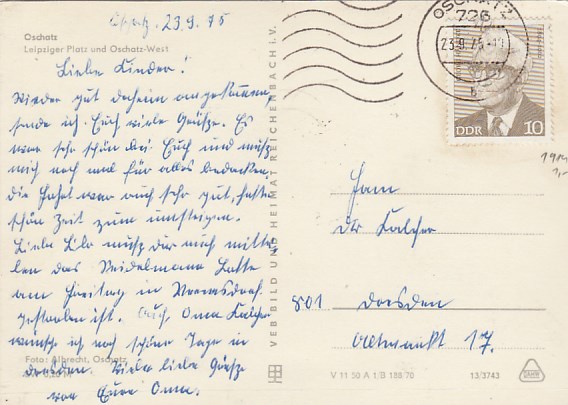 Oschatz, 23.9.75
Oschatz
Leipziger Platz und Oschatz-West
Liebe Kinder!
Wieder gut daheim angekommen,
sende ich Euch viele Grüße. Es
war sehr schön bei Euch und muß
mich noch mal für alles bedanken,
die Fahrt war auch sehr gut, hatte
schön Zeit zum umsteigen.
Liebe Lilo muß Dir auch mittei-
len das Seidelmann Lotte
am Freitag in
gestorben ist. Auch Oma Kalcher
wünsche ich noch schöne Tage in
Dresden. Viele liebe Grüße
von Eure Oma.
Foto: Albrecht, Oschatz
VEB BILD UND HEIMAT REICHENBACH i. V.
OSCHATZ
726
23.9.75
b
DDR 10
Fam
Kalcher
801 Dresden
Altmarkt 17.
V 11 50 A 1/B 188/70
13/3743